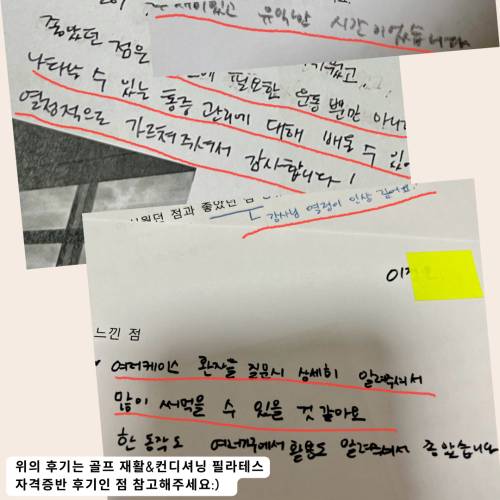 재미있고 유익한 시간이었습니다
좋았던 점은
필요한 운동 뿐만 아니라
나타날 수 있는 통증 관리에 대해 배울 수 있
열정적으로 가르쳐주셔서 감사합니다!
점과 좋았던 점
강사님 열정이 인상 깊어요.
이
느낀 점
여러케이스 환자들 질문시 상세히 알려주셔서
많이 써먹을 수 있을 것 같아요
한 동작도 여러가에서 활용도 알려주셔서 좋았습니다
위의 후기는 골프 재활&컨디셔닝 필라테스
자격증반 후기인 점 참고해주세요:)